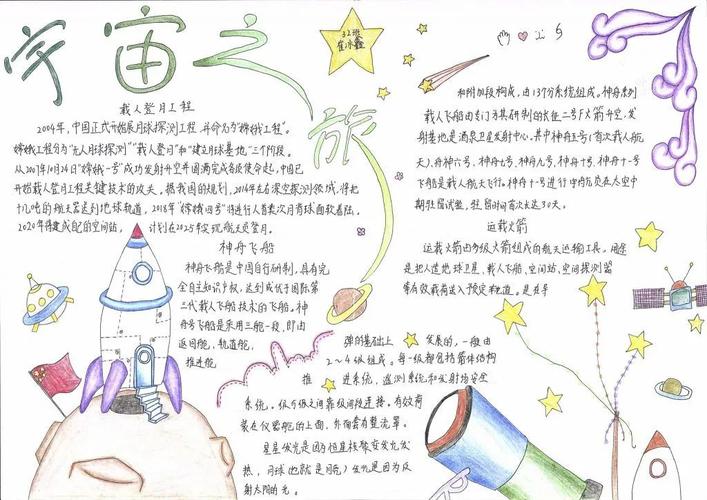 宇宙之旅
32班
崔冰鑫
载人登月工程
2004年，中国正式开始展月球探测工程，并命名为"嫦娥工程"。
嫦娥工程分为"无人月球探测""载人登月"和"建立月球基地"三个阶段。
从2007年10月24日"嫦娥一号"成功发射升空并圆满完成各段使命起，中国已
开始载人登月工程关键技术的攻关。据我国的规划，2016年左右深空探测领域，将把
十几吨的航天器送到地球轨道，2018年"嫦娥四号"将进行人类首次月背球面软着陆。
2020年将建成自己的空间站，计划在2025年实现航天员登月。
神舟飞船
神舟飞船是中国自行研制，具有完
全自主知识产权，达到或优于国际第
三代载人飞船技术的飞船。神
舟号飞船是采用三舱一段，即由
返回舱，轨道舱，
推进舱
和附加段构成，由13个分系统组成。神舟系列
载人飞船由专门为其研制的长征二号F火箭升空，发
射基地是酒泉卫星发射中心。其中神舟五号(首次载人航
天)、神舟六号、神舟七号、神舟九号、神舟十号、神舟十一号
飞船是载人航天飞行。神舟十一号进行中航员在太空中
期驻留试验，驻留时间首次长达30天。
运载火箭
运载火箭由多级火箭组成的航天运输工具。用途
是把人造地球卫星、载人飞船、空间站、空间探测器
等有效载荷送入预定轨道。是在导
弹的基础上发展的，一般由
2～4级组成。每一级都包括箭体结构
推进系统，遥测系统和发射场安全
系统。级与级之间靠级间段连接。有效荷
装在仪器舱的上面，外面套有整流罩。
星星发光是因为恒星核聚变发光发
热，月球(也就是月亮)发光是因为反
射太阳的光。